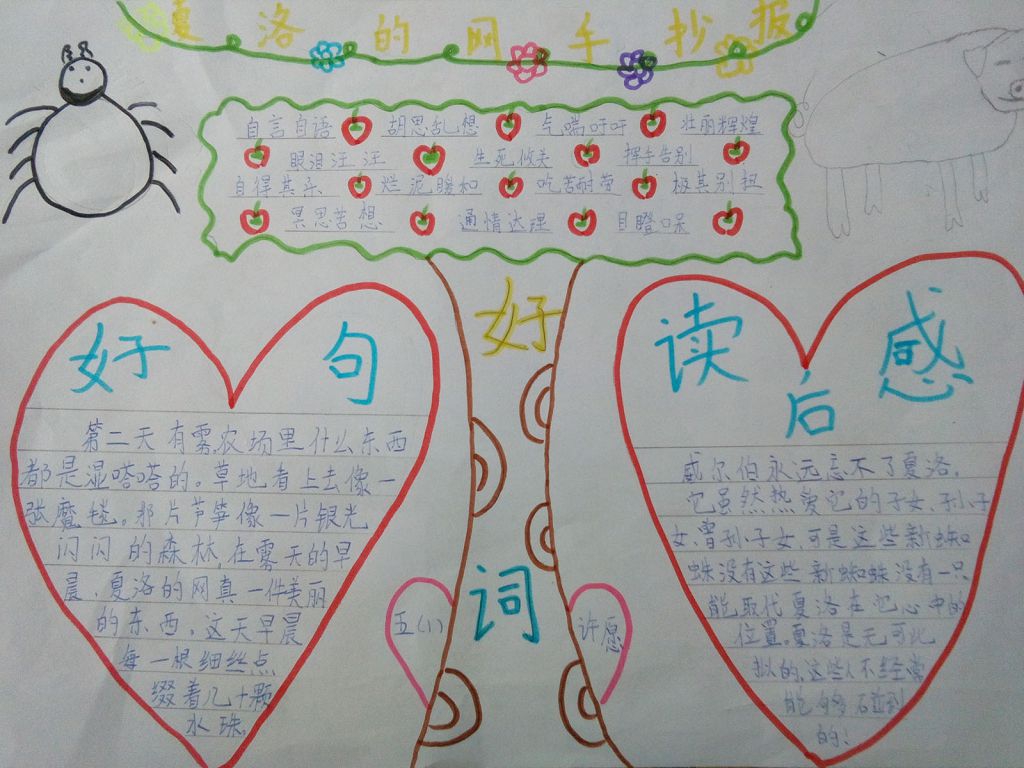 夏洛的网手抄报
自言自语 胡思乱想 气喘吁吁 壮丽辉煌
眼泪汪汪 生死攸关 挥手告别
自得其乐 烂泥 吃苦耐劳 极其别扭
冥思苦想 通情达理 目瞪口呆
好
词
好句
第二天有雾,农场里什么东西
都是湿嗒嗒的。草地看上去像一
张魔毯。那片芦笋像一片银光
闪闪的森林,在雾天的早
晨,夏洛的网真一件美丽
的东西。这天早晨
每一根细丝点
缀着几十颗
水珠。
五(1)
许愿
读后感
威尔伯永远忘不了夏洛,
它虽然热爱它的子女、孙子
女、曾孙子女,可是这些新蜘
蛛没有这些新蜘蛛没有一只
能取代夏洛在它心中的
位置。夏洛是无可比
拟的,这些人不经常
能够碰到
的!